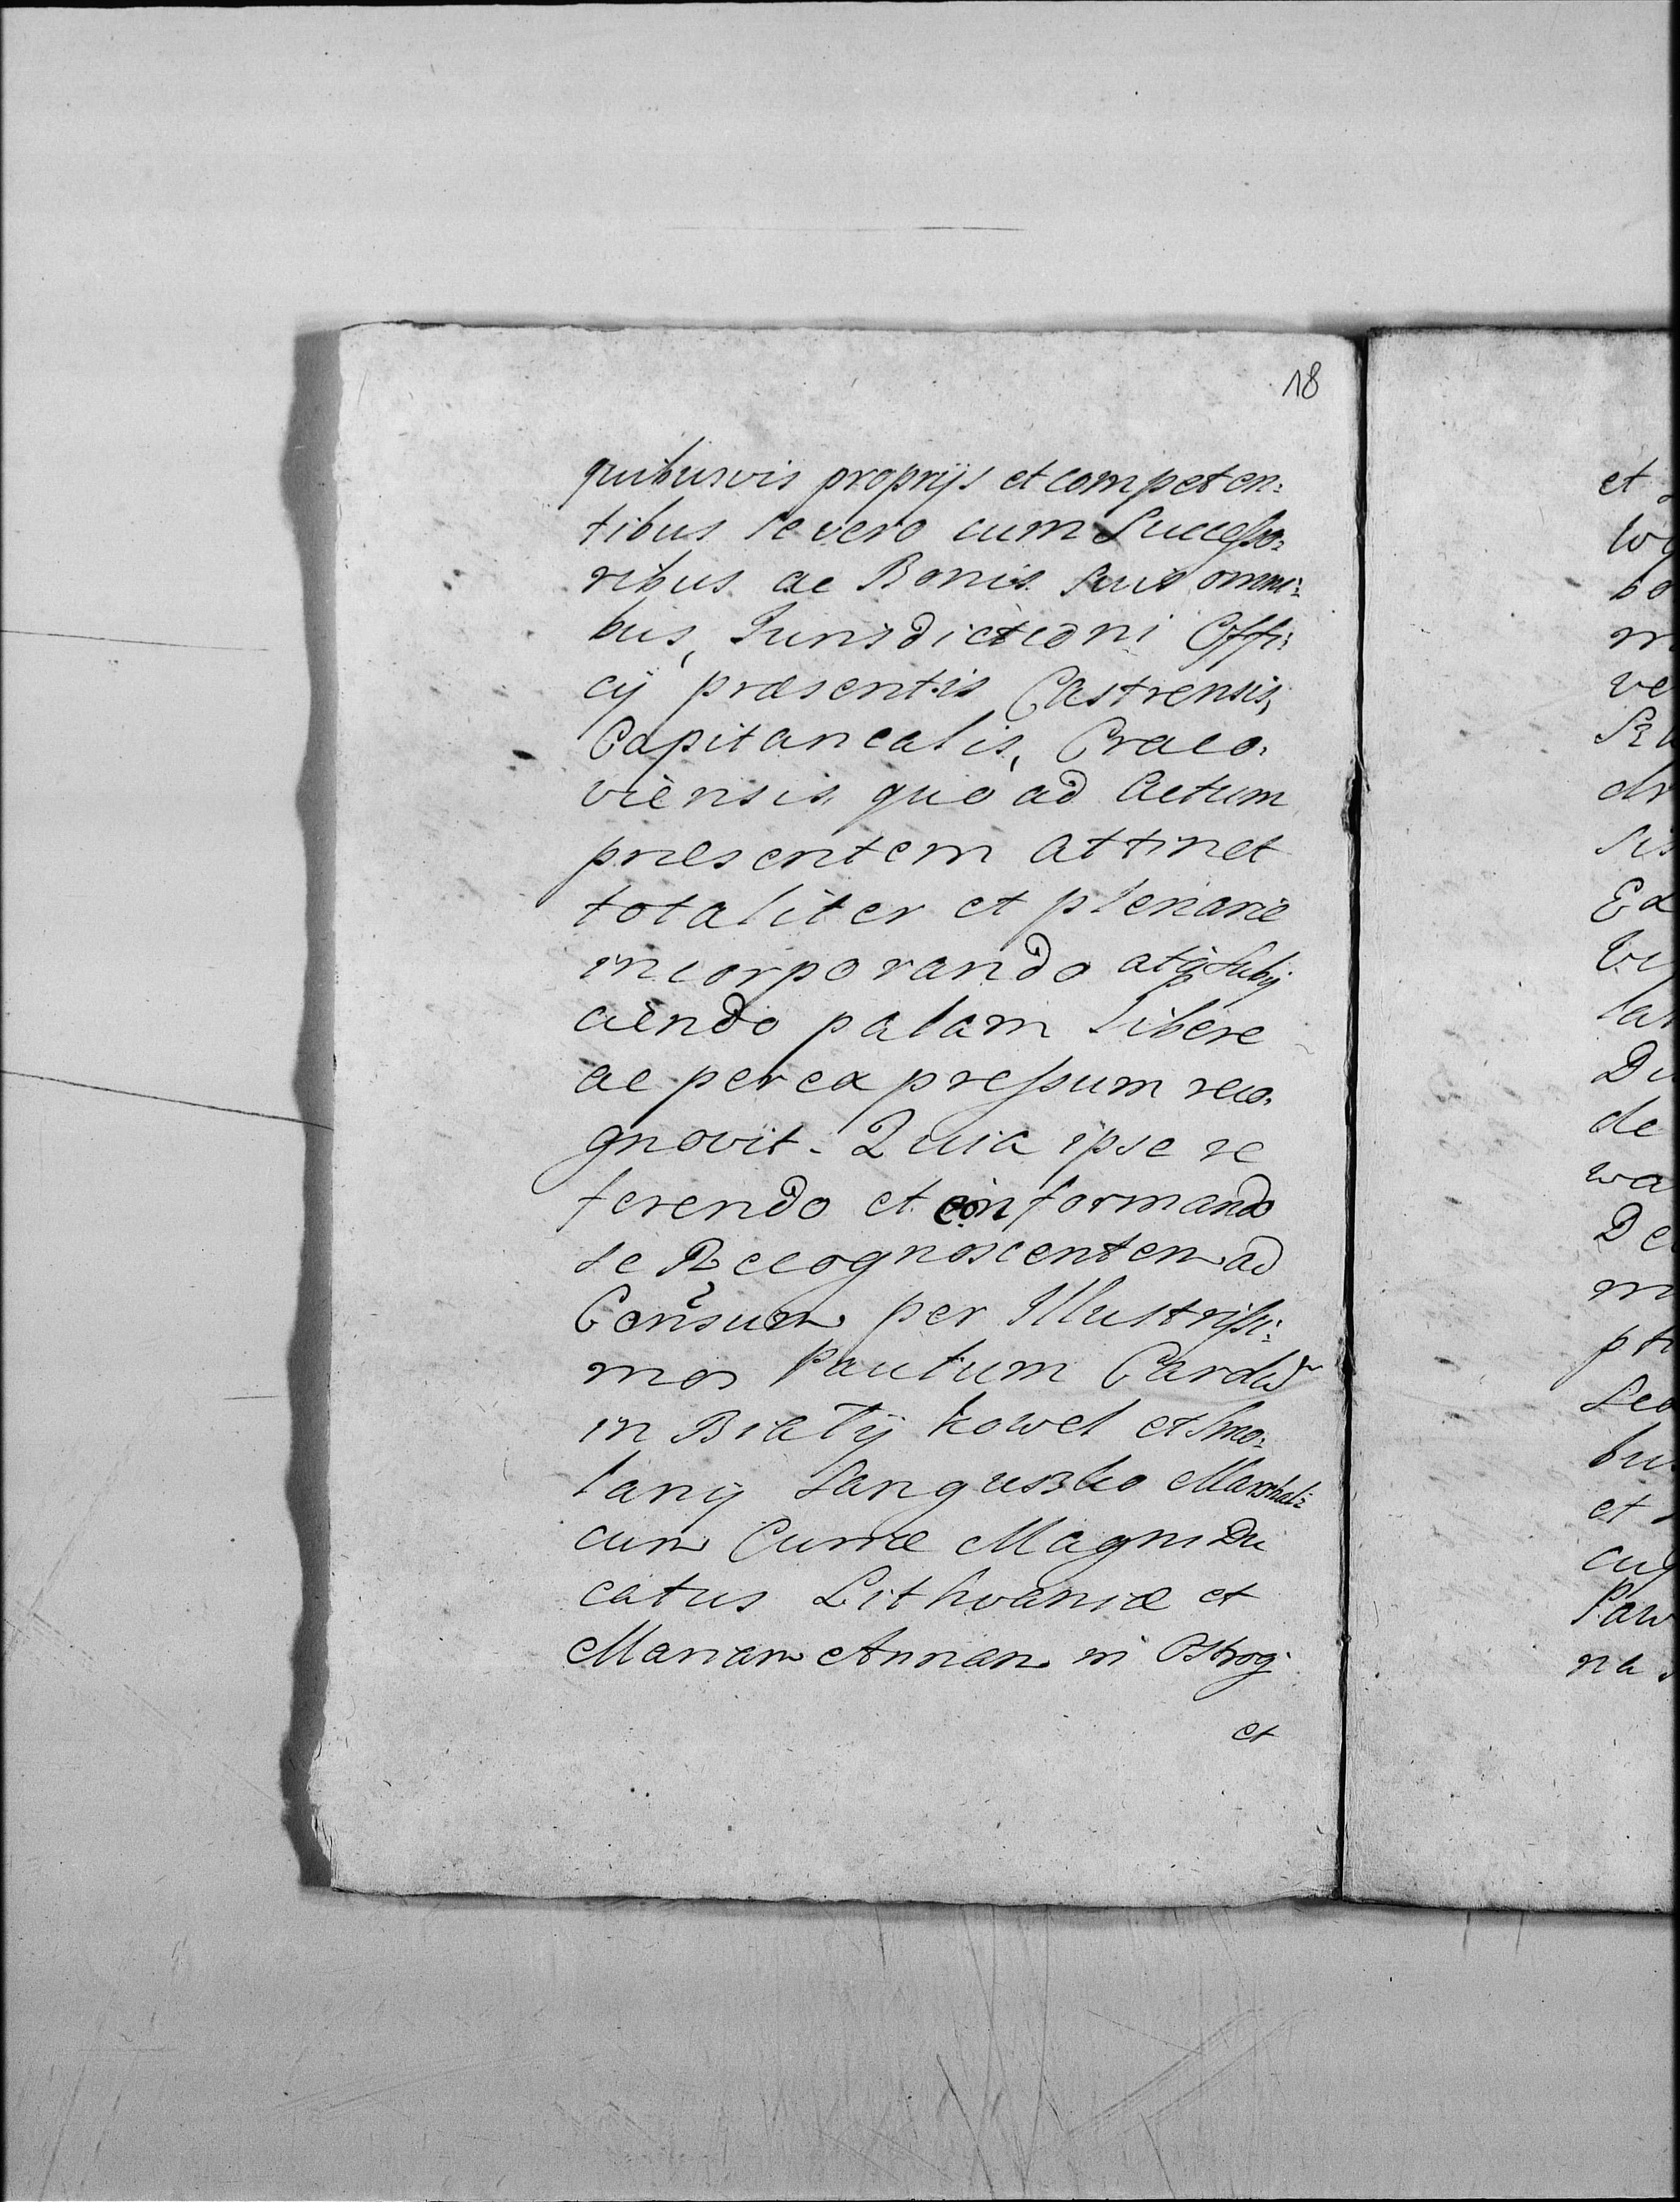 18
quibusvis proprijs et competen:
tibus se vero cum Successo:
ribus ac Bonis suis omni:
bus, Jurisdictioni Offi:
cij præsentis Castrensis,
Capitanealis, Craco:
viensis, quo ad Actum
præsentem attinet
totaliter et plenarie
incorporando atq̃ subij
ciendo palam libere
ac per expressum reco:
gnovit. Quia ipse re
ferendo et conformando
se Recognoscentem ad
Consum per Illustrissi:
mos Paulum
in Biały Kowel et Smo:
lany Sanguszko Marschal:
cum Curiæ Magni Du
catus Lithvaniæ et
Mariam Annam in Ostrog
et
et
bo
ve
Ex
Du
de
wa
De
et
Paw
na